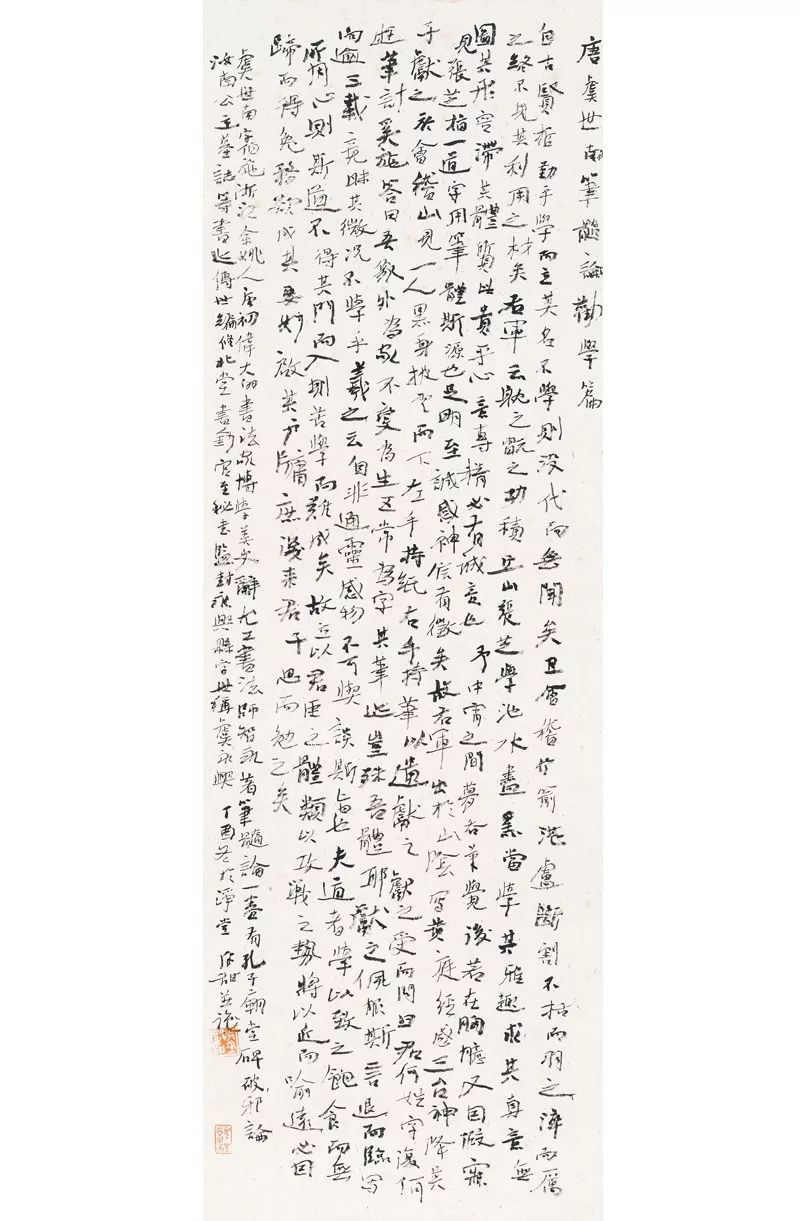 唐虞世南筆髓論勸學篇
自古賢哲勤乎學而立其名不學則沒代而無聞矣且會稽竹箭湛盧斷割不括而羽之淬而厲
之終不見其利用之材矣右軍云耽之翫之功積丘山張芝學池水盡黑當學其雅趣求其真意無
圖其形容滯其體質以貴乎心意專精必有誠意也予中宵之間夢吞筆覺後若在胸臆又因假寐
見張芝指一道字用筆體斯源也足明至誠感神信有徵矣故右軍出於山陰寫黃庭經感三台神降其
子獻之於會稽山見一人黑身披雲而下左手持紙右手持筆以遺獻之獻之受而問曰君何姓字復何
遊筆計奚施答曰吾象外為家不變為生五常為字其筆迹豈殊吾體耶獻之佩服斯言退而臨寫
向逾三載竟昧其微况不學乎羲之云自非通靈感物不可與談斯旨也夫道者學以致之飽食而無
所用心則斯道不得其門而入則苦學而難成矣故立以君臣之體類以攻戰之勢將以近而喻遠必因
蹄而得兔務欲成其要妙啟其戶牖庶後來君子思而勉之矣
虞世南字施浙江余姚人唐初偉大的書法家博學善文辭尤工書法師智永著筆髓論一卷有孔子廟堂碑破邪論
汝南公主墓誌等書迹傳世編修北堂書鈔官至秘書監封永興縣子世稱虞永興 丁酉冬於淨堂 并識